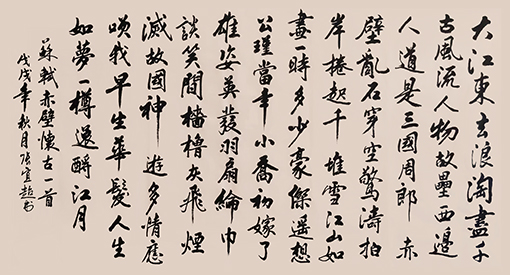 大江東去浪淘盡千
古風流人物故壘西邊
人道是三國周郎赤
壁亂石穿空驚濤拍
岸捲起千堆雪江山如
畫一時多少豪傑遥想
公瑾當年小喬初嫁了
雄姿英發羽扇綸巾
談笑間檣櫓灰飛煙
滅故國神遊多情應
我早生華髮人生
如夢一樽還酹江月
蘇軾赤壁懷古一首
戊戌年秋月張書